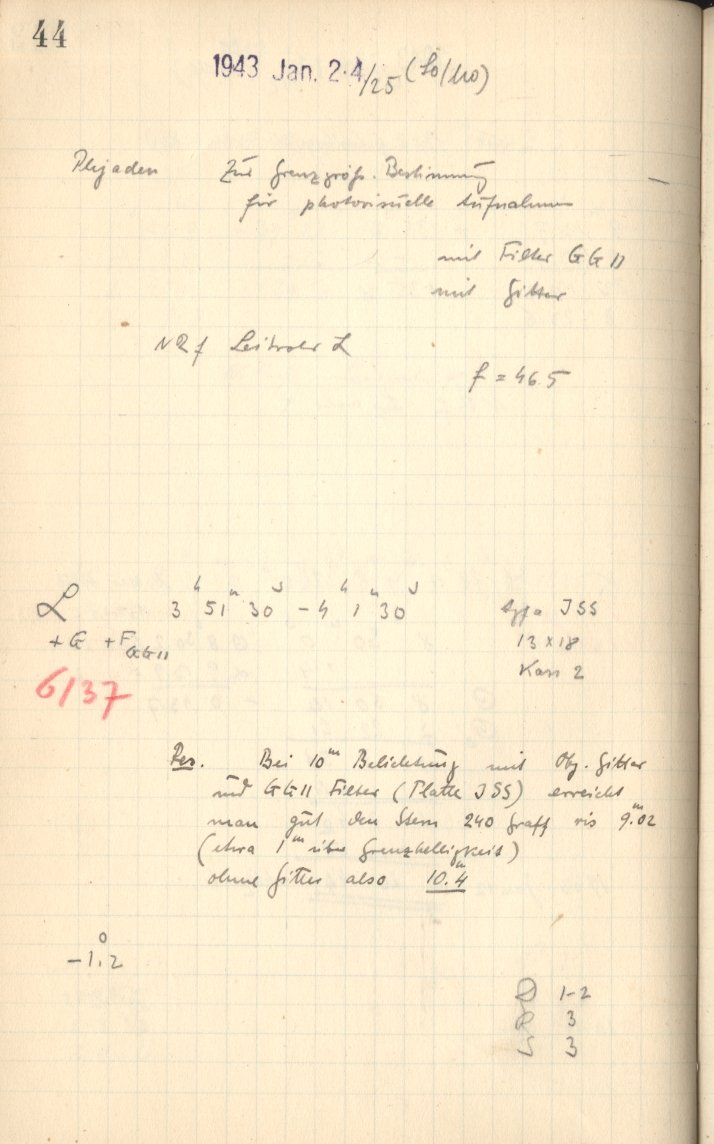 44
1943 Jan. 2.4/25 (Lö/Mo)
Plejaden Zur Grenzgröß. Bestimmung
für photovisuelle Aufnahmen
mit Filter GG 11
mit Gitter
Leitrohr L
f = 46.5
L 3h 51m 30s - 4h 1m 30s Agfa ISS
+ G + F GG11 13 x 18
Kass 2
6137
Res. Bei 10m Belichtung mit Obj. Gitter
und GG11 Filter (Platte ISS) erreicht
man gut den Stern 240 Graff vis 9.m02
(etwa 1m über Grenzhelligkeit)
ohne Gitter also 10.m4
-1.°2
D 1-2
R 3
S 3